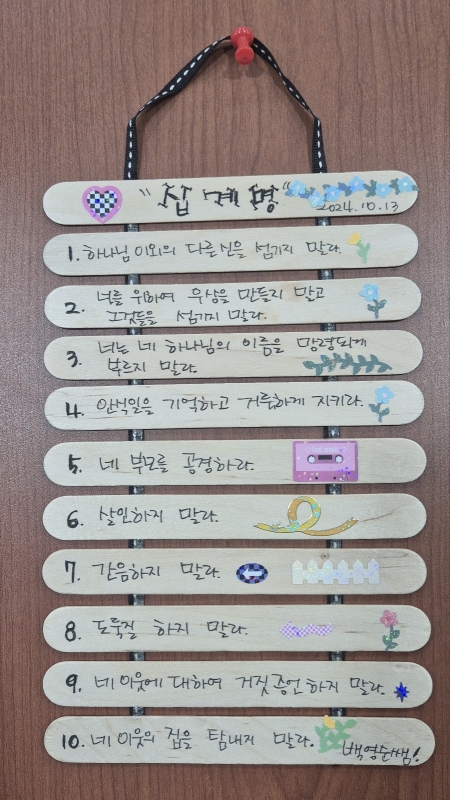 "십계명"
2024.10.13
1. 하나님 이외의 다른신을 섬기지 말라.
2. 너를 위하여 우상을 만들지 말고
그것들을 섬기지 말라.
3. 너는 네 하나님의 이름을 망령되게
부르지 말라.
4. 안식일을 기억하고 거룩하게 지키라.
5. 네 부모를 공경하라.
6. 살인하지 말라.
7. 간음하지 말라.
8. 도둑질 하지 말라.
9. 네 이웃에 대하여 거짓증언 하지 말라.
10. 네 이웃의 집을 탐내지 말라.